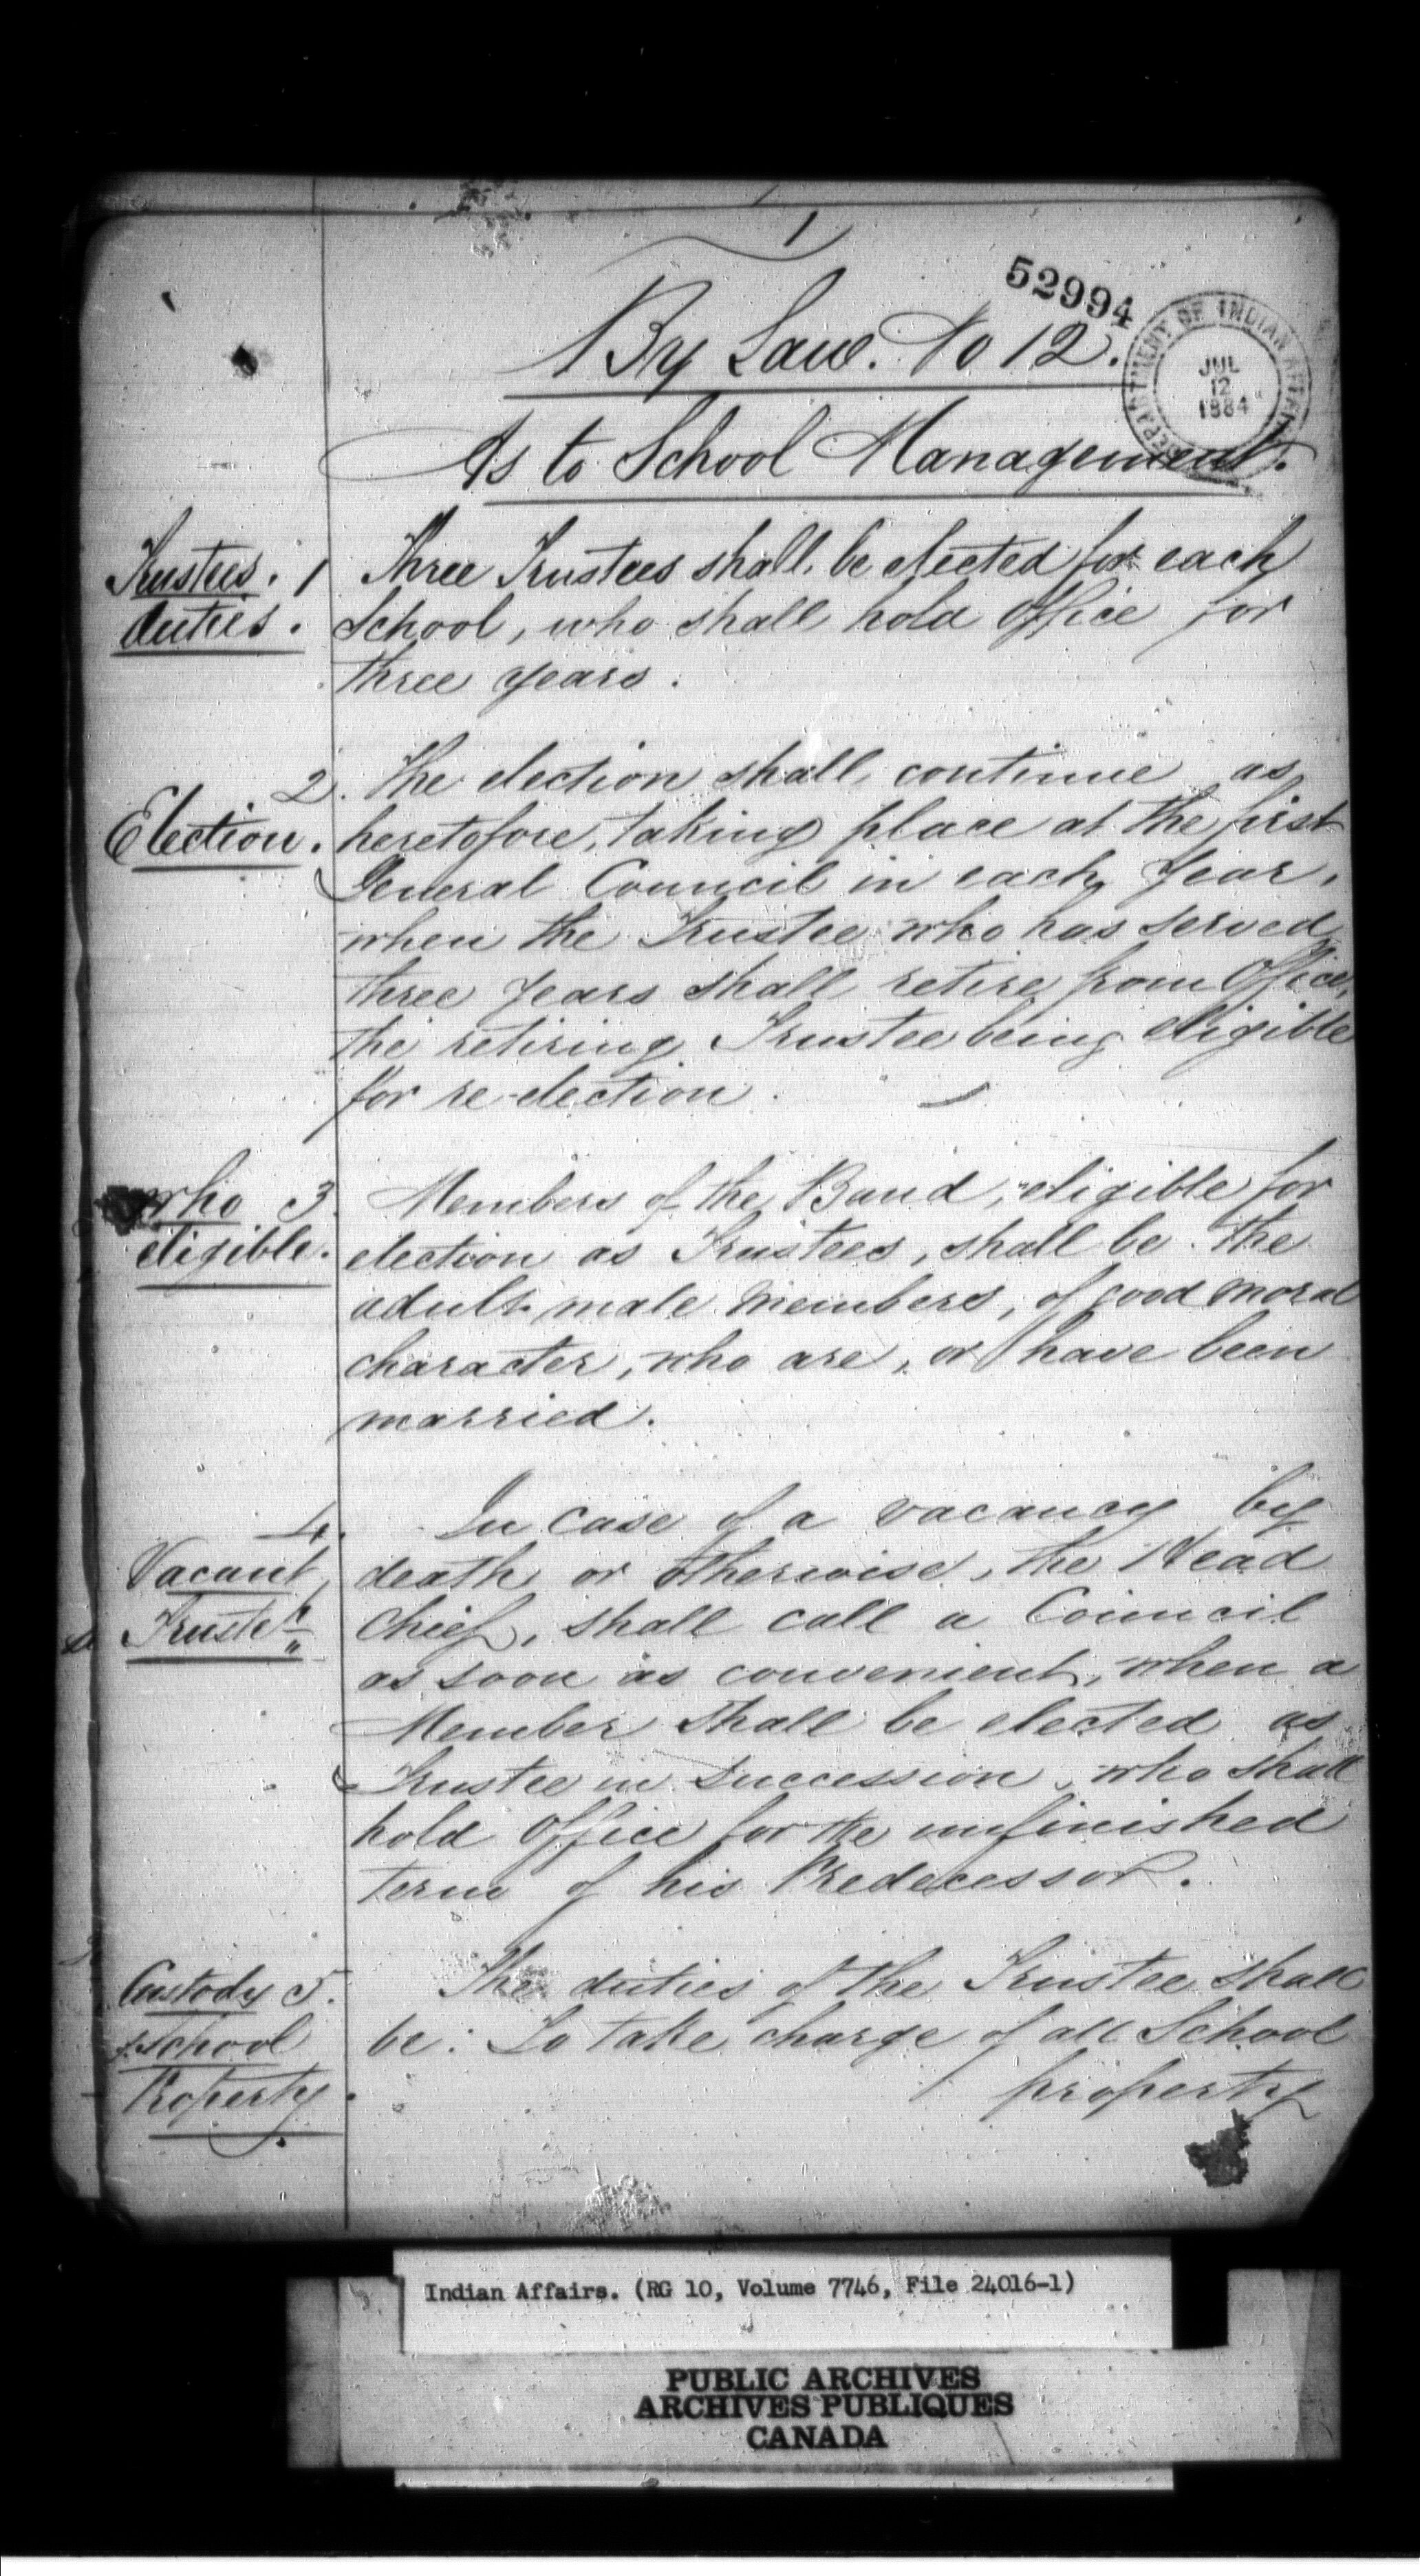 1
52994
By Law. No 12.
DEPARTMENT OF INDIAN AFFAIRS
JUL
12
1884
As to School Management.
Trustees. 1 Three Trustees shall be elected for each
duties. School, who shall hold office for
three years.
2. The election shall, continue as
Election. heretofore, taking place at the first
General Council in each Year,
when the Trustee who has served
three Years shall retire from Office,
the retiring Trustee being eligible
for re-election.
who 3. Members of the Band, eligible for
eligible. election as Trustees, shall be the
adult male members, of good moral
character, who are, or have been
married.
4. In case of a vacancy by
Vacant death or otherwise, the Head
Chief, shall call a Council
as soon as convenient, when a
Member shall be elected as
Trustee in succession, who shall
hold office for the unfinished
term of his Predecessor.
Custody 5. The duties of the Trustee shall
School be: To take charge of all School
Property. property
Indian Affairs. (RG 10, Volume 7746, File 24016-1)
PUBLIC ARCHIVES
ARCHIVES PUBLIQUES
CANADA